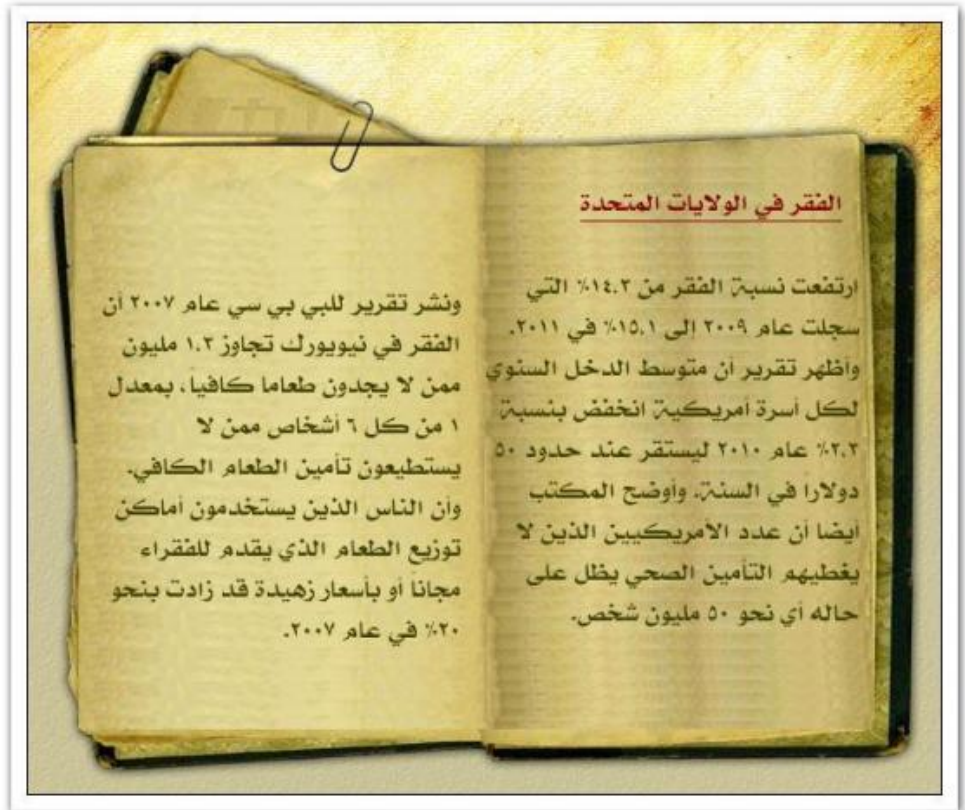 الفقر في الولايات المتحدة
ارتفعت نسبة الفقر من ١٤.٣٪ التي
سجلت عام ٢٠٠٩ إلى ١٥.١٪ في ٢٠١١.
وأظهر تقرير أن متوسط الدخل السنوي
لكل أسرة أمريكية انخفض بنسبة
٢.٣٪ عام ٢٠١٠ ليستقر عند حدود ٥٠
دولارا في السنة. وأوضح المكتب
أيضا أن عدد الامريكيين الذين لا
يغطيهم التأمين الصحي يظل على
حاله أي نحو ٥٠ مليون شخص.
ونشر تقرير للبي بي سي عام ٢٠٠٧ أن
الفقر في نيويورك تجاوز ١.٣ مليون
ممن لا يجدون طعاما كافياً، بمعدل
١ من كل ٦ أشخاص ممن لا
يستطيعون تأمين الطعام الكافي.
وأن الناس الذين يستخدمون أماكن
توزيع الطعام الذي يقدم للفقراء
مجاناً أو بأسعار زهيدة قد زادت بنحو
٢٠٪ في عام ٢٠٠٧.